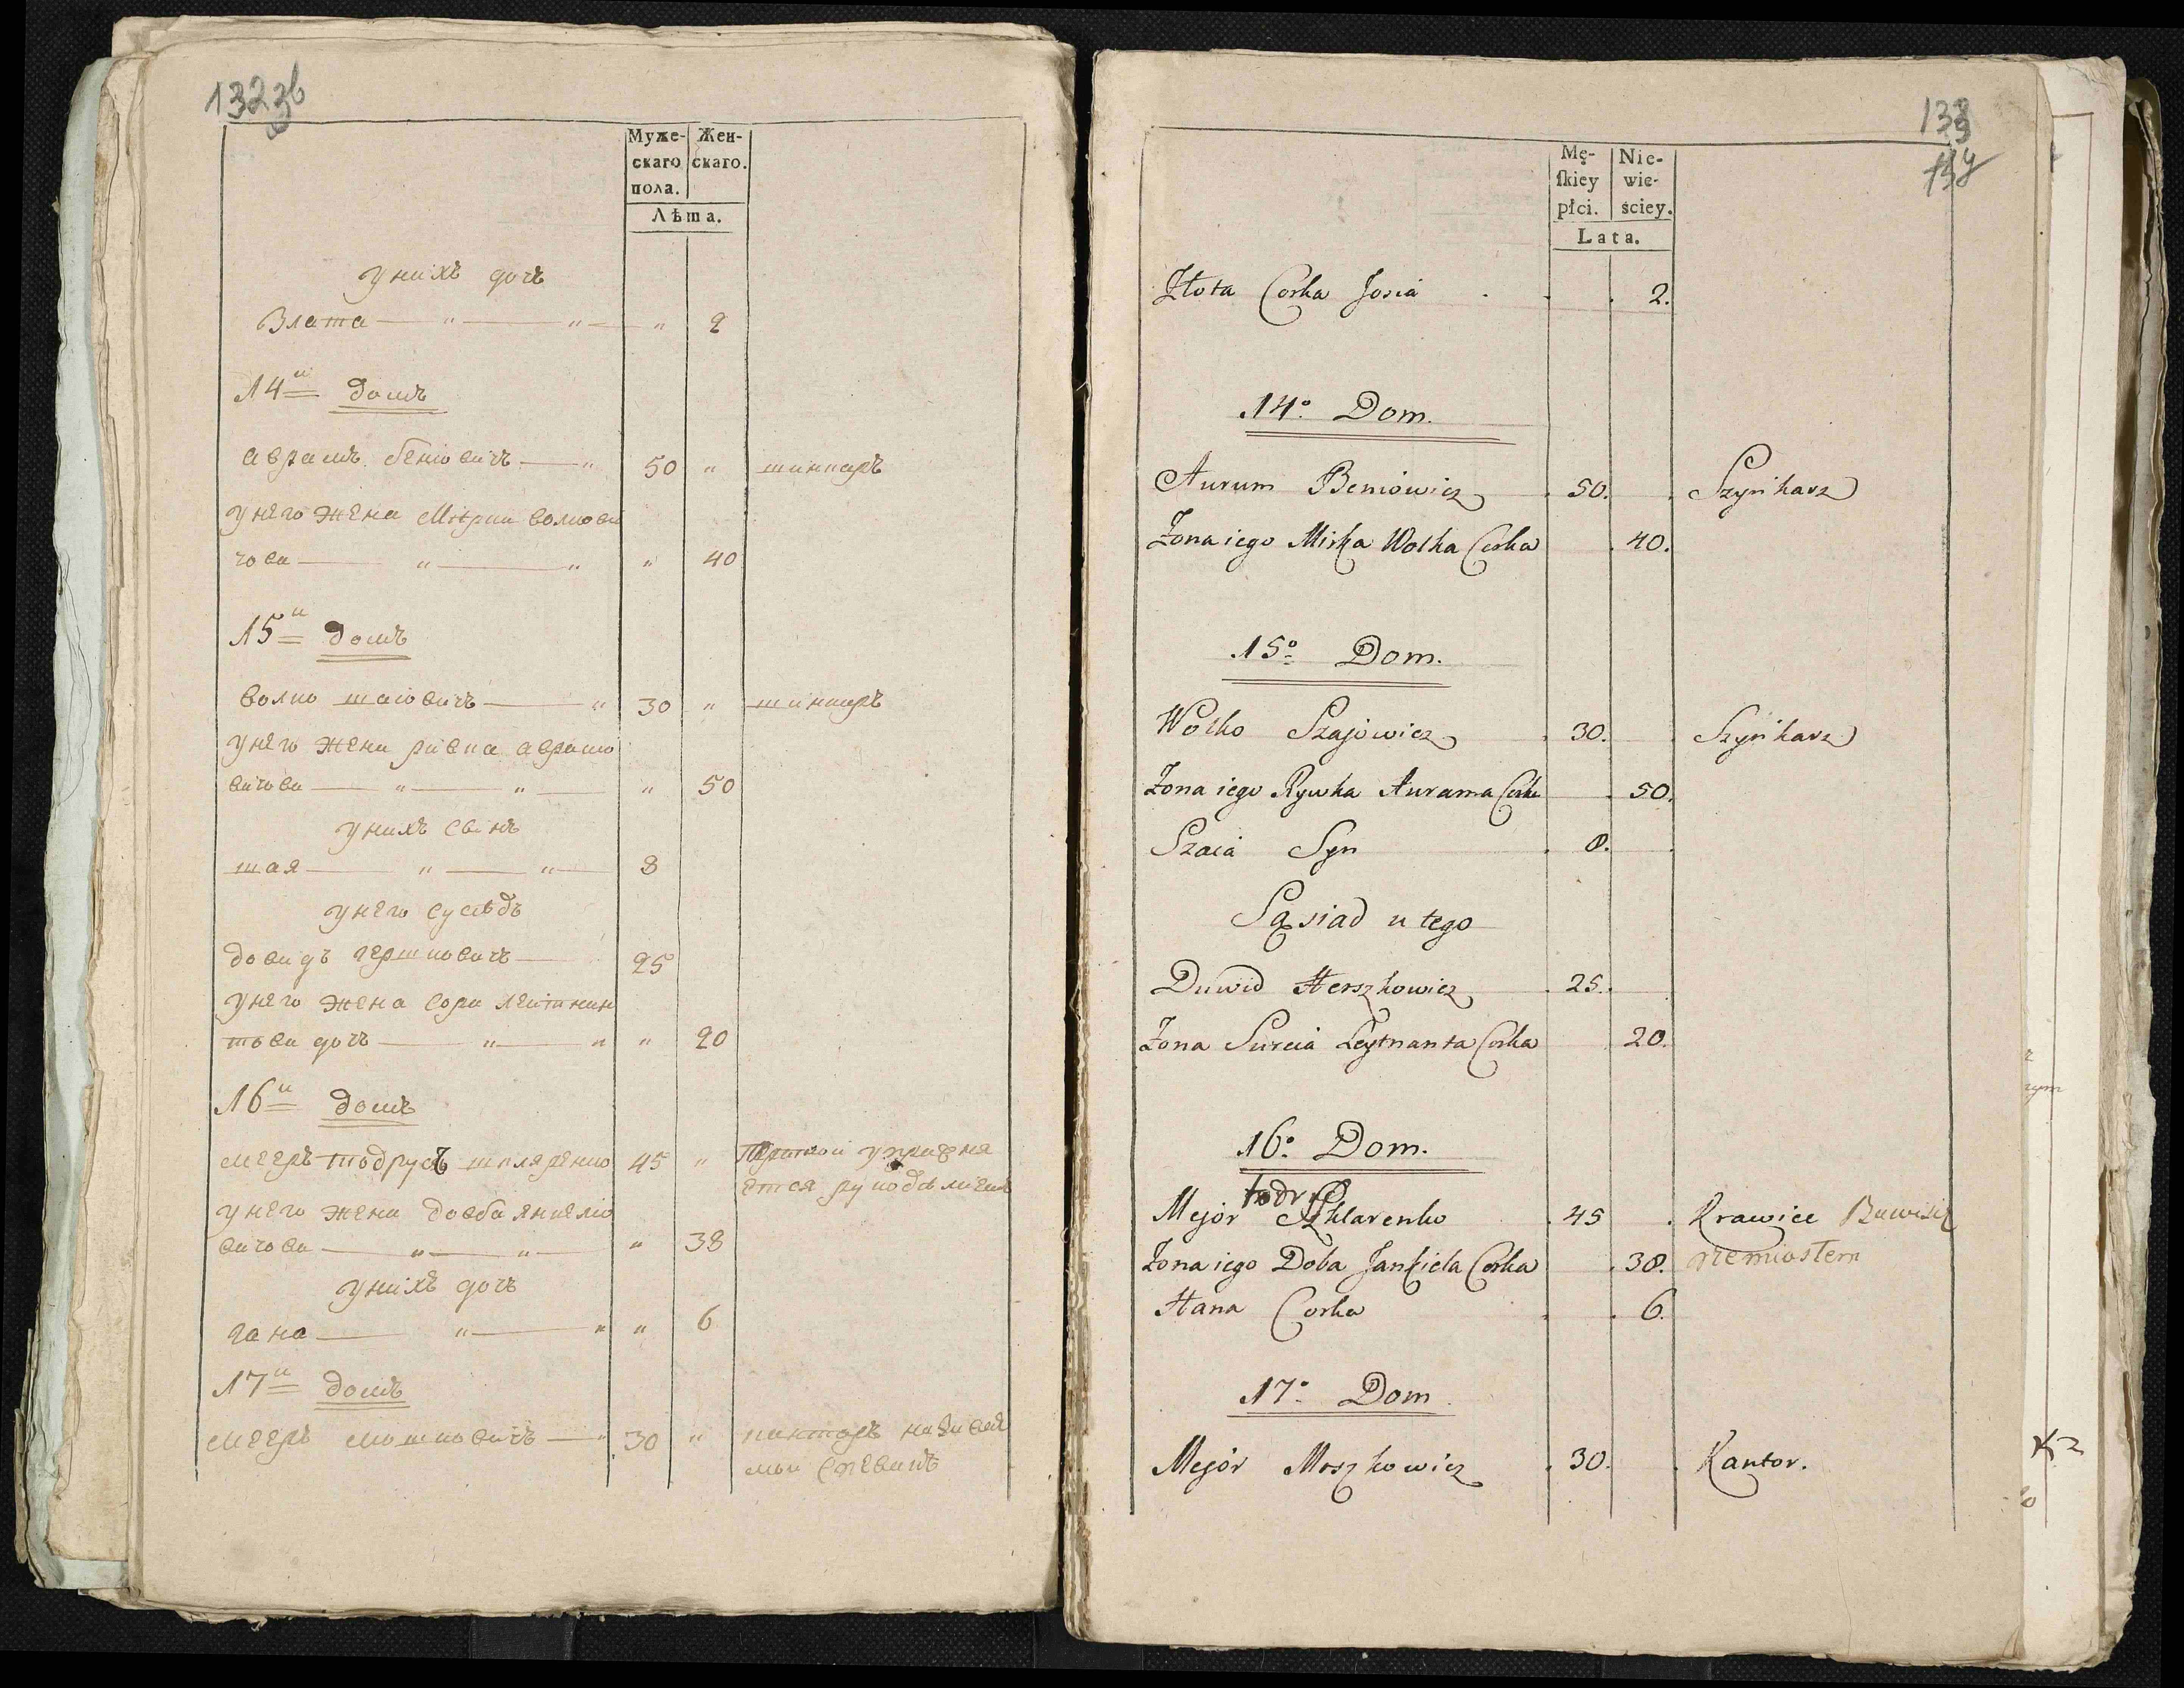 132 об
Муже- Жен-
скаго скаго.
пола.
Лѣта.
у нихъ дочь
Злата — " — " — " 2
14й домъ
Аврамъ Беніовичъ — " 50 " шинкаръ
у него жена Мирка Волкови
чова — " — " " 40
15й домъ
Волко Шаіовичъ — " 30 " шинкаръ
у него жена Ривка Аврамо
вичова — " — " — " 50
у нихъ синъ
Шая — " — " — 8
у него сусѣдъ
Довидъ Гершковичъ — 25
у него жена Сора Лейтнан
това дочъ — " — " " 20
16й домъ
Мееръ Тодрусъ Шкляренко 45 " упражня
ется рукодѣлиемъ
у него жена Довба Янкелио
вичова — " — " — " 38
у нихъ дочъ
Гана — " — " " 6
17й домъ
Мееръ Мошковичъ — " 30 " кантаръ називае
мый
133
Mę- Nie-
ſkiey wie-
płci. ściey.
Lata.
Złota Corka Josia . . . 2.
14o. Dom.
Aurum Beniowicz . 50. . Szynkarz
Zona iego Mirka Wolka Corka . 40.
15o. Dom.
Wolko Szajowicz . 30. . Szynkarz
Zona iego Rywka Aurama Corka . 50.
Szaia Syn . 8. .
Sąsiad u tego
Duwid Herszkowicz . 25.
Zona Surcia Leytnanta Corka . 20.
16o. Dom.
todr
Mejor Szklarenko . 45 . Krawiec Bawiący
Zona iego Doba Jankiela Corka . 38. rzemiosłem
Hana Corka . . 6.
17o. Dom.
Mejor Moszkowicz . 30. . Kantor.